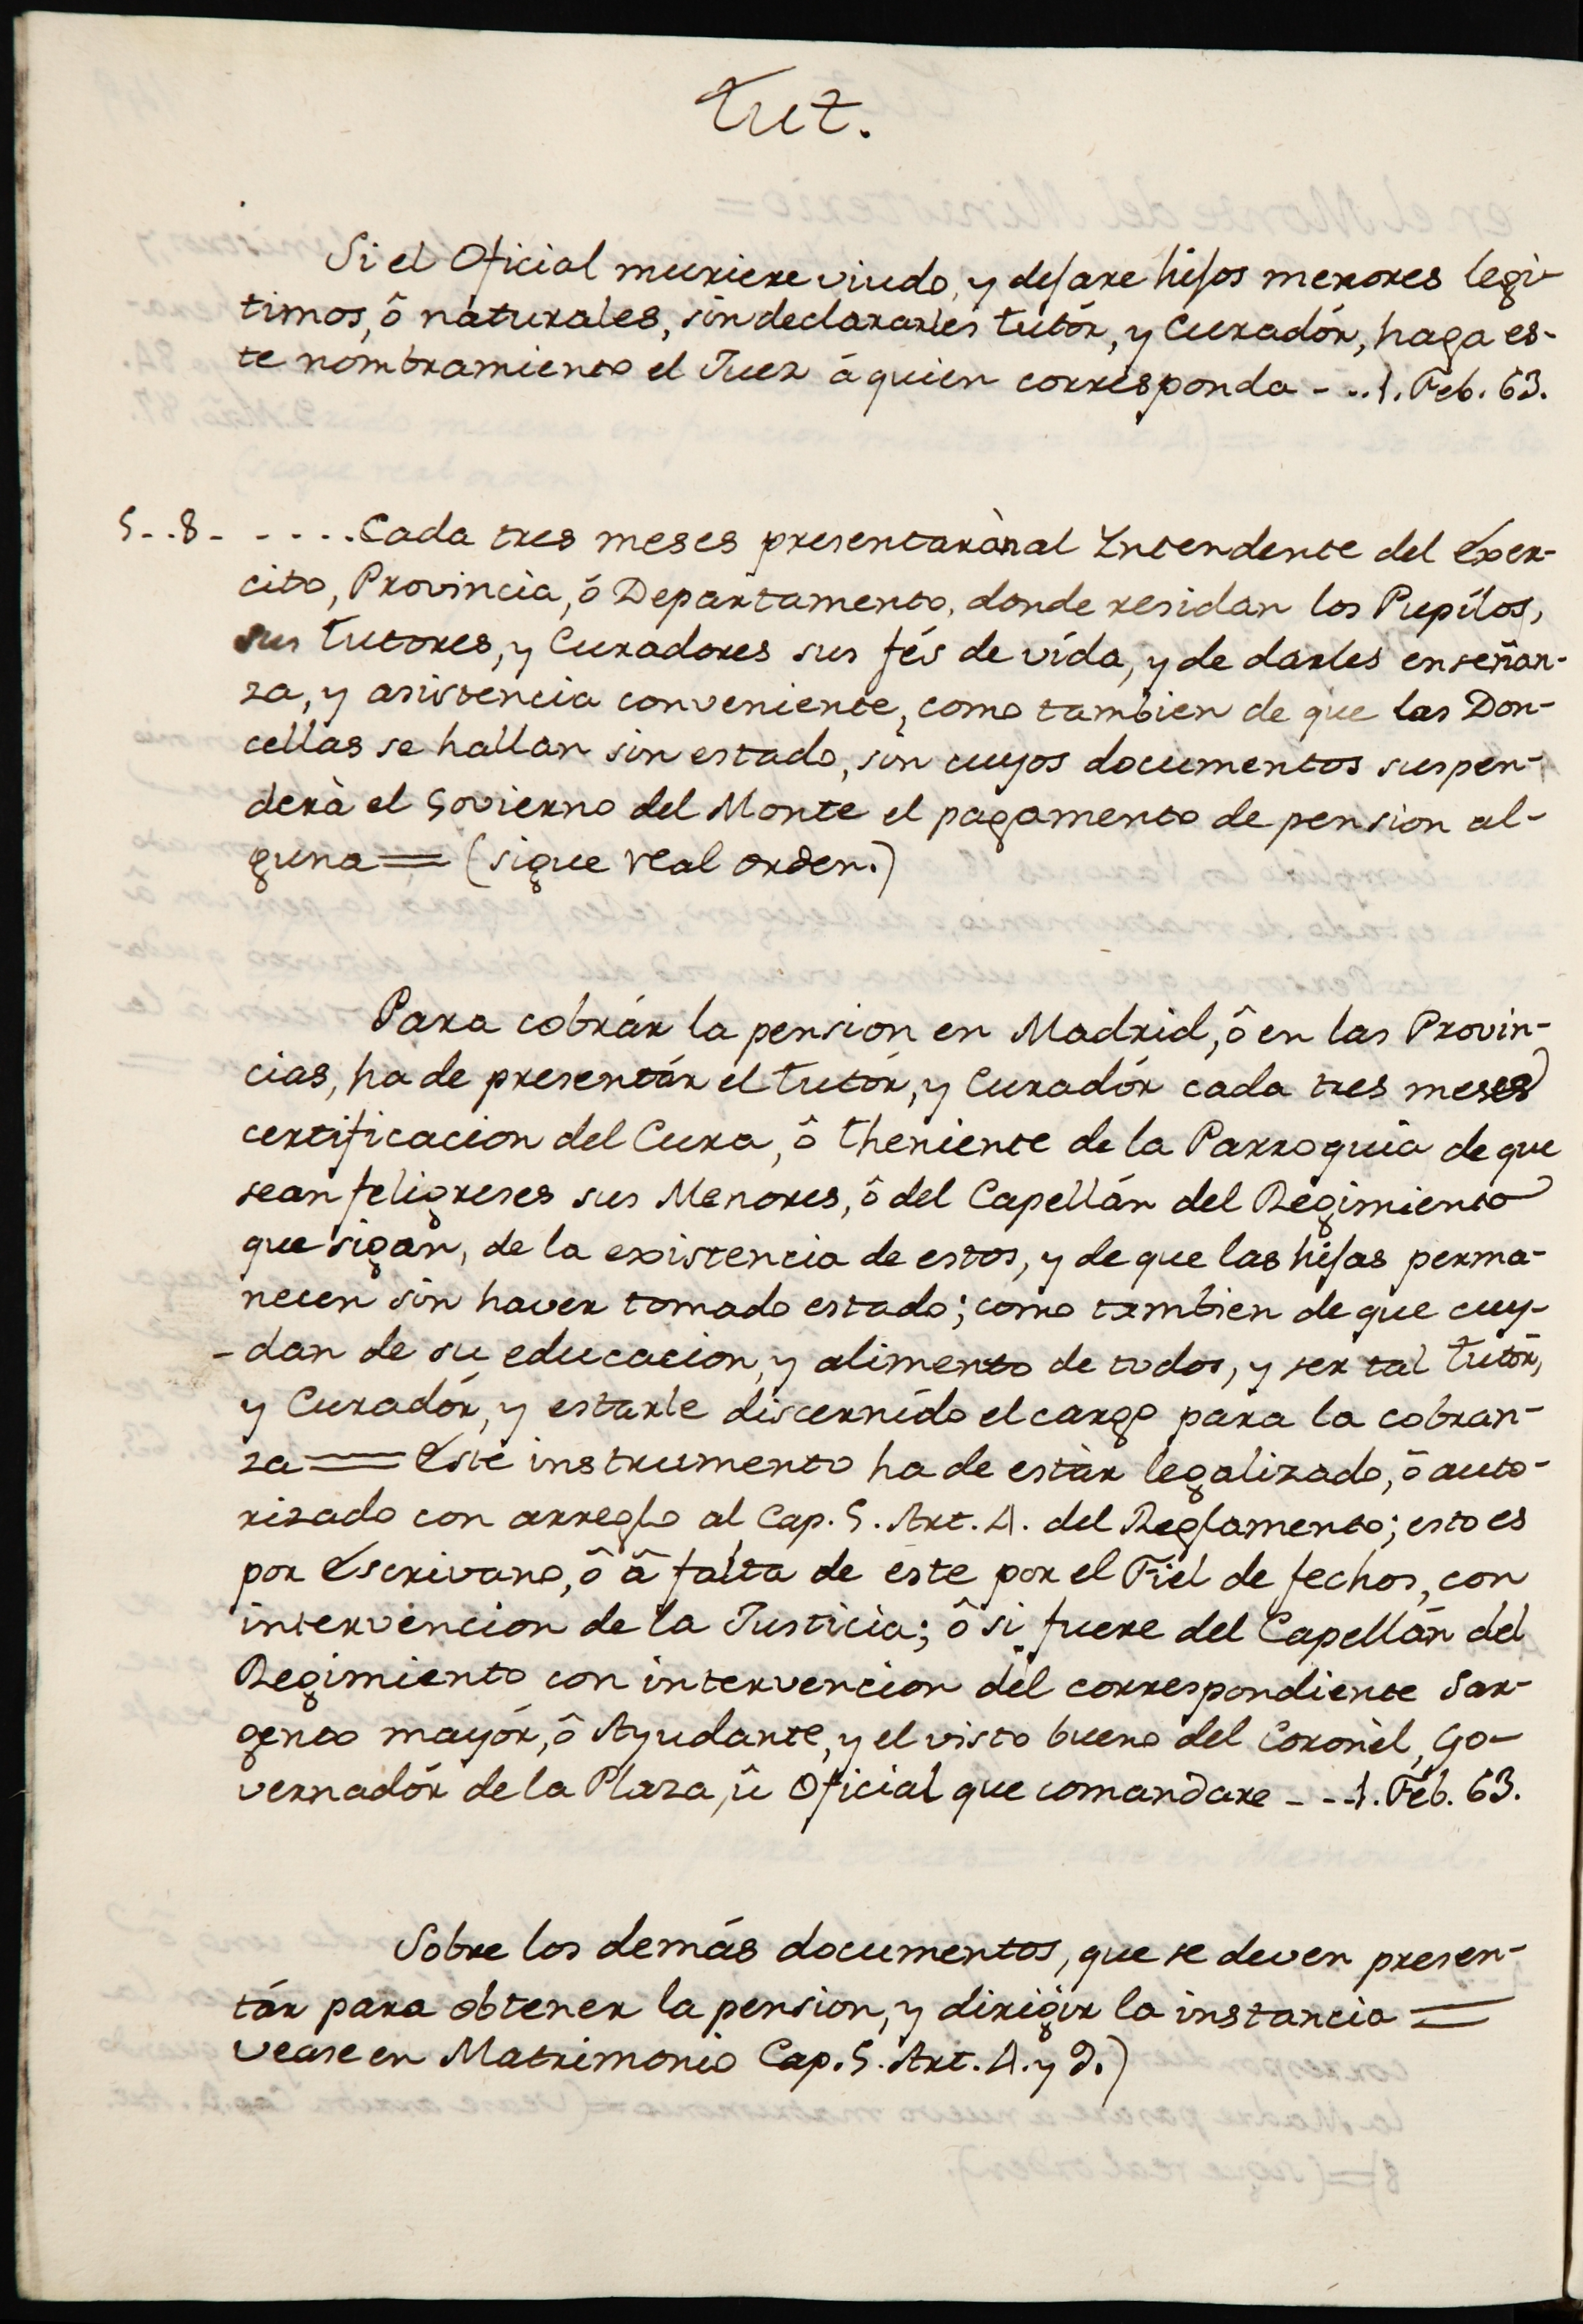 Tut.
Si el Oficial muriere viudo, y dejare hijos menores legi-
timos, ô naturales, sin declararles tutór, y Curadór, haga es-
te nombramiento el Juez á quien corresponda - .. 1. Feb. 63.
5. . 8 - - - . . . Cada tres meses presentaràn al Yntendente del Exer-
cito, Provincia, ó Departamento, donde residan los Pupilos,
sus tutores, y Curadores sus fés de vída, y de darles enseñan-
za, y asistencia conveniente, como tambien de que las Don-
cellas se hallan sin estado, sin cuyos documentos suspen-
derà el Govierno del Monte el pagamento de pension al-
guna = (sigue real orden.)
Para cobrár la pension en Madrid, ô en las Provin-
cias, ha de presentár el tutór, y Curadór cada tres meses
certificacion del Cura, ô theniente de la Parroquia de que
sean feligreses sus Menores, ô del Capellán del Regimiento
que sigan, de la existencia de estos, y de que las hijas perma-
necen sin haver tomado estado; como tambien de que cuy-
-dan de su educacion, y alimento de todos, y ser tal tutór,
y Curadór, y estarle discernído el cargo para la cobran-
za = Este instrumento ha de estàr legalizado, ô auto-
rizado con arreglo al Cap. 5. Art. 4. del Reglamento; esto es
por Escrivano, ô â falta de este por el Fiel de fechos, con
intervencion de la Justicia; ô si fuere del Capellán del
Regimiento con intervencion del correspondiente Sar-
gento mayór, ô Ayudante, y el visto bueno del Coronèl, Go-
vernadór de la Plaza, û Oficial que comandare - - - 1. Feb. 63.
Sobre los demás documentos, que se deven presen-
tár para obtener la pension, y dirigir la instancia =
vease en Matrimonio Cap. 5. Art. 4. y 9.)